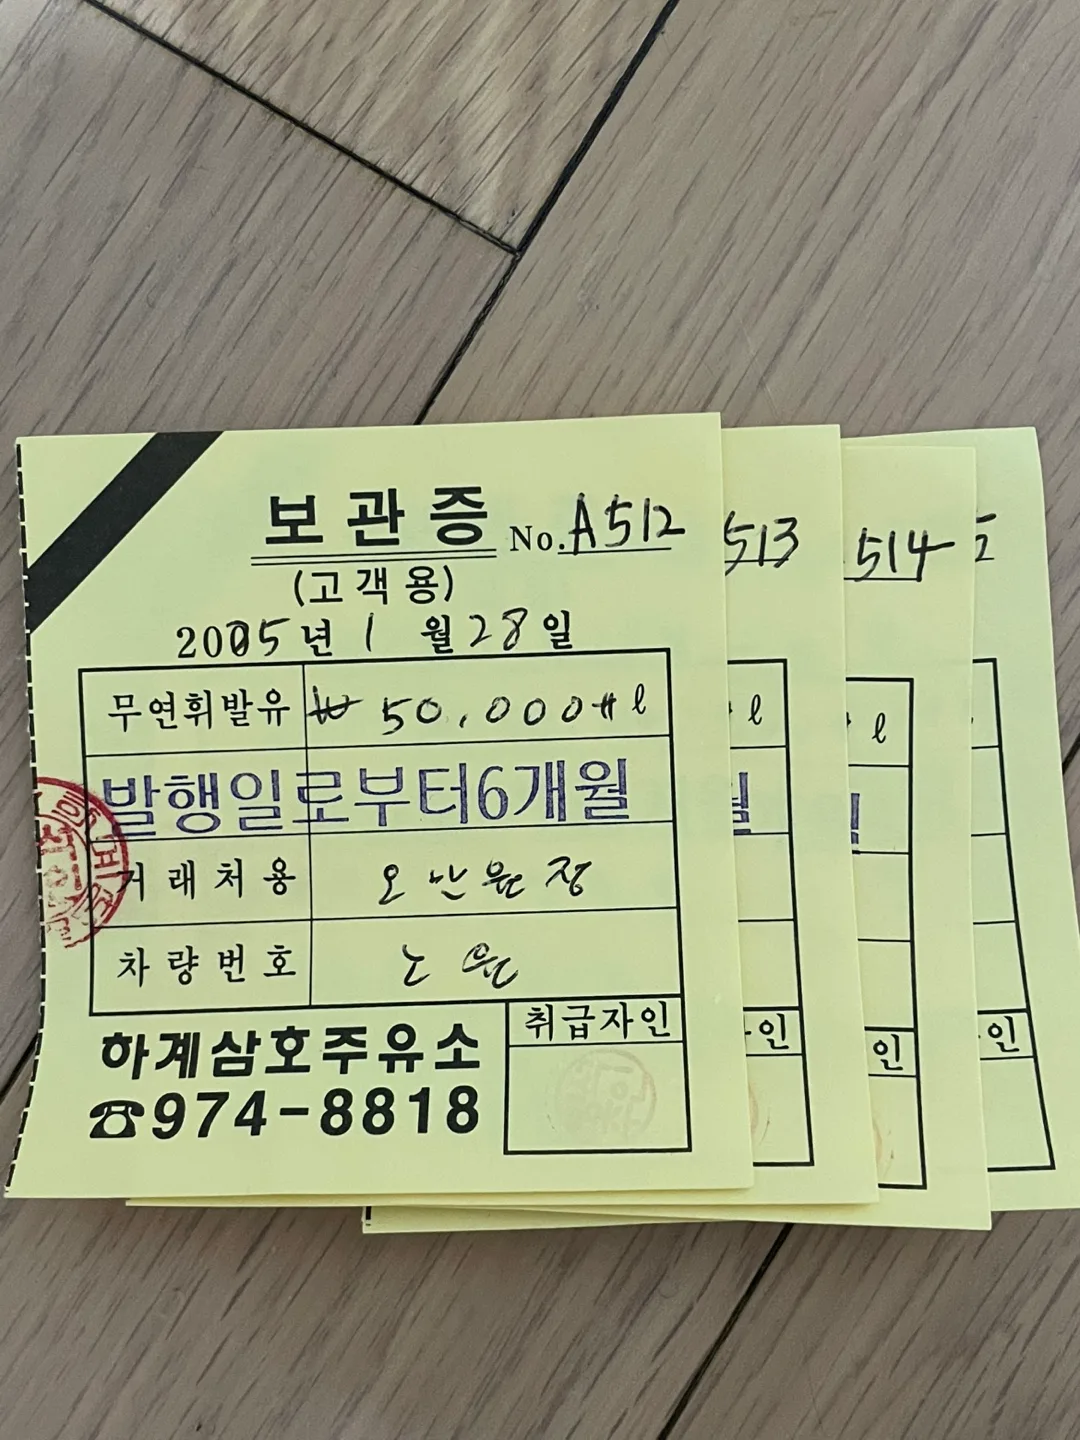 보관증 No. A512
(고객용)
2005년 1월 28일
무연휘발유 ₩50,000# ℓ
발행일로부터6개월
거래처용 오만원정
차량번호 노원
취급자인
하계삼호주유소
☎974-8818
513
ℓ
월
인
514
ℓ
인
5
인